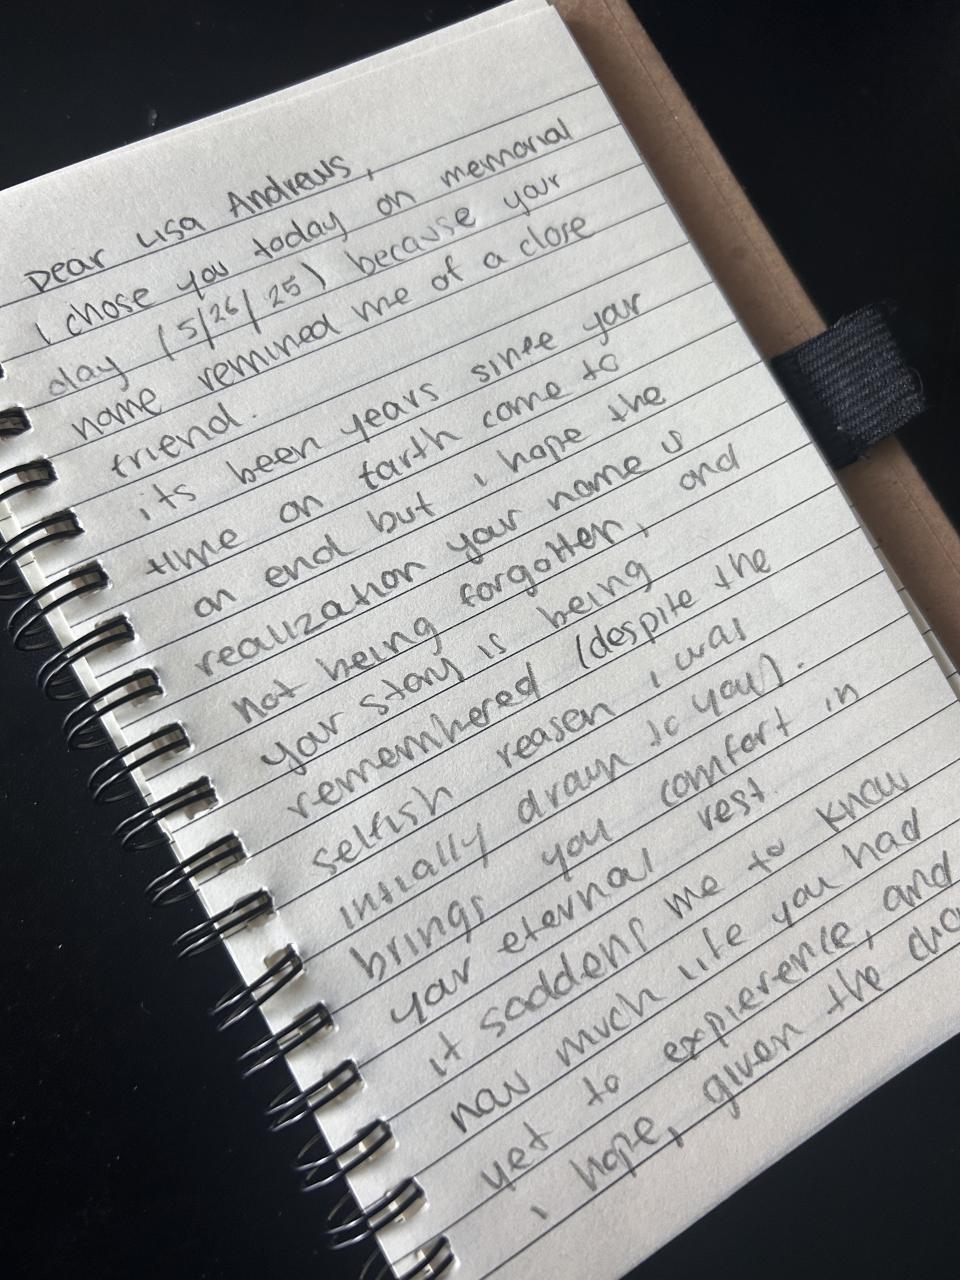 Dear Lisa Andrews,
I chose you today on memorial
day (5/26/25) because your
name remined me of a close
friend.
its been years since your
time on earth came to
an end but i hope the
realization your name is
not being forgotten, and
your story is being
remembered (despite the
selfish reason i was
intially drawn to you).
brings you comfort in
your eternal rest.
it saddens me to know
how much life you had
yet to expierence, and
i hope, given the cha